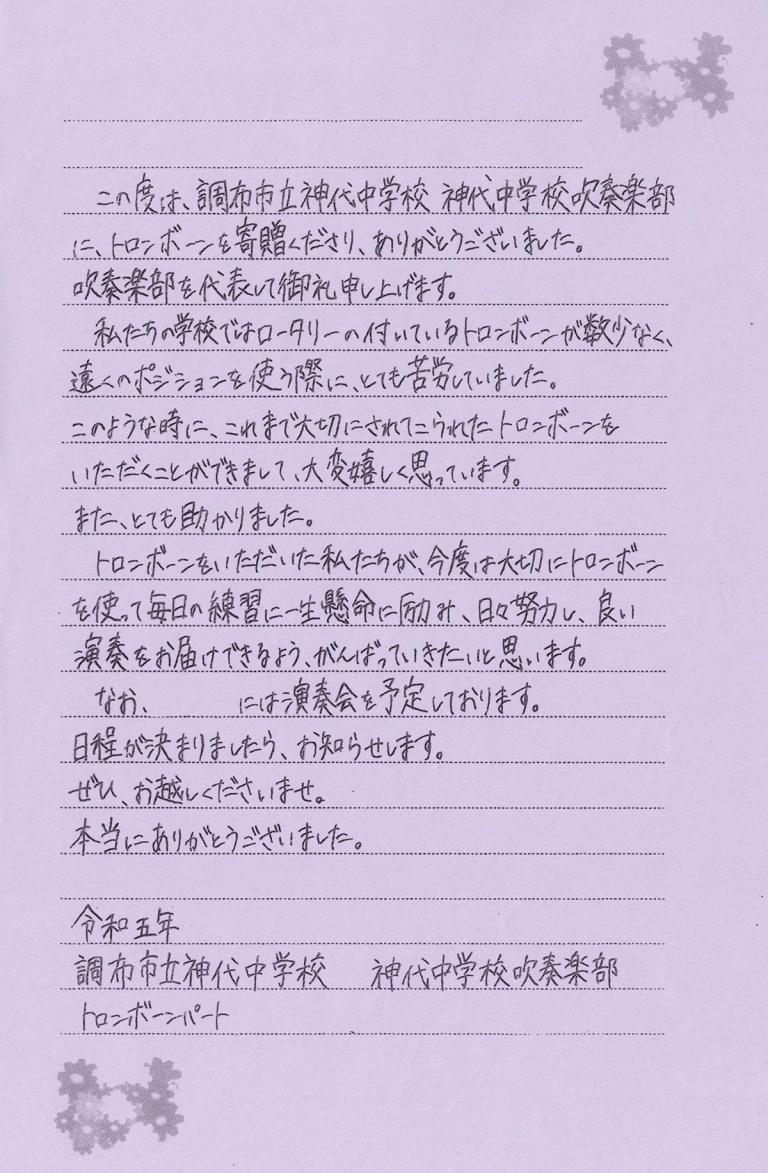 この度は、調布市立神代中学校 神代中学校吹奏楽部
に、トロンボーンを寄贈くださり、ありがとうございました。
吹奏楽部を代表して御礼申し上げます。
私たちの学校ではロータリーの付いているトロンボーンが数少なく、
遠くのポジションを使う際に、とても苦労していました。
このような時に、これまで大切にされてこられたトロンボーンを
いただくことができまして、大変嬉しく思っています。
また、とても助かりました。
トロンボーンをいただいた私たちが、今度は大切にトロンボーン
を使って毎日の練習に一生懸命に励み、日々努力し、良い
演奏をお届けできるよう、がんばっていきたいと思います。
なお、 には演奏会を予定しております。
日程が決まりましたら、お知らせします。
ぜひ、お越しくださいませ。
本当にありがとうございました。
令和五年
調布市立神代中学校 神代中学校吹奏楽部
トロンボーンパート